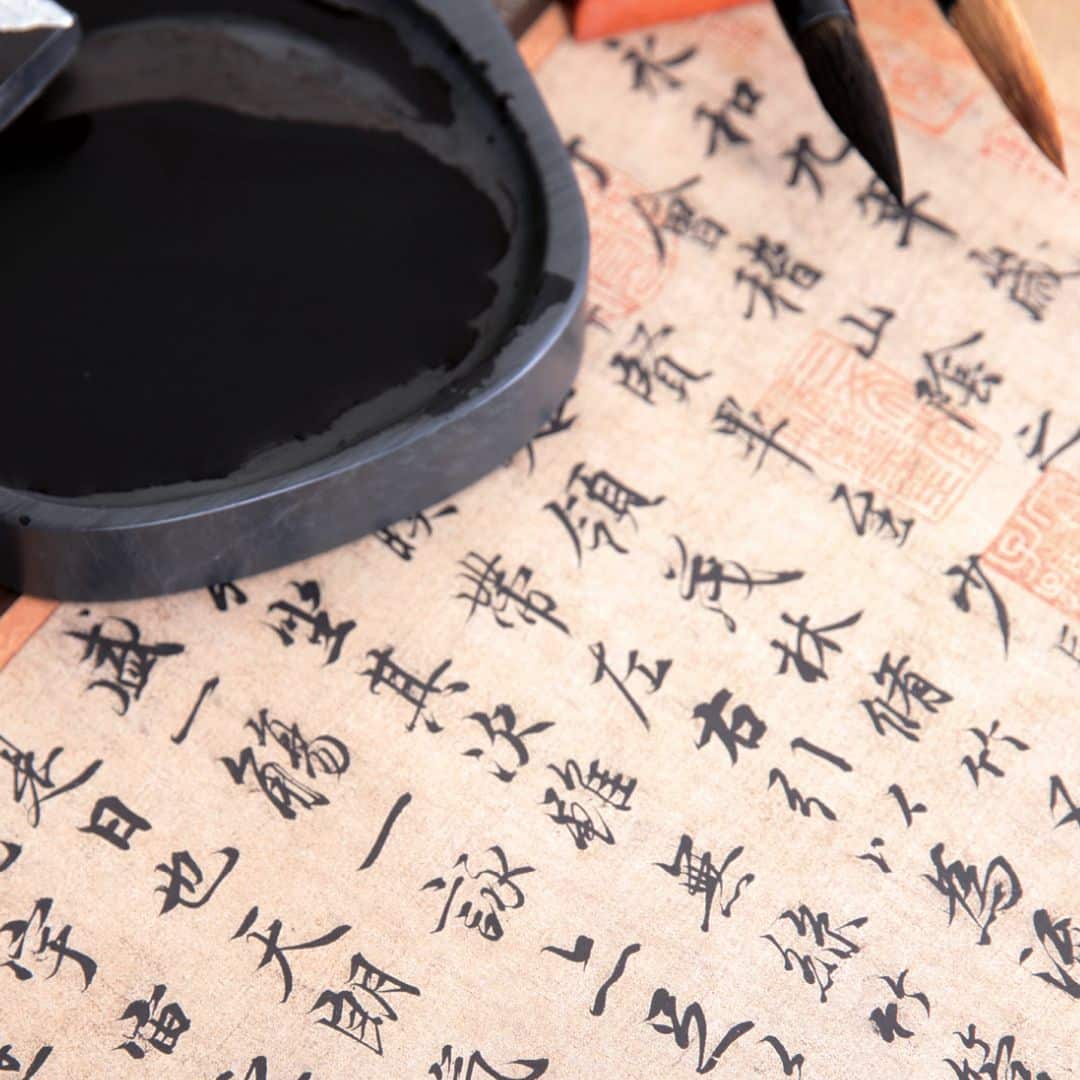 永和九年歲
會稽山陰之
賢畢至少
領茂林脩竹又
映帶左右引以為流
坐其次雖無絲竹管
盛一觴一詠亦足以
是日也天朗氣
宇宙